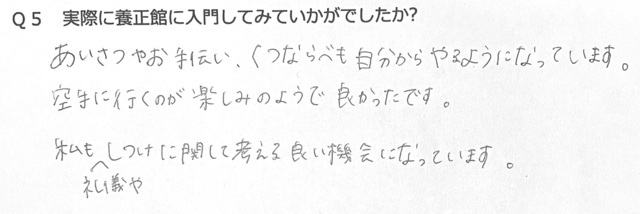 Q5 実際に養正館に入門してみていかがでしたか?
あいさつやお手伝い、くつならべも自分からやるようになっています。
空手に行くのが楽しみのようで良かったです。
私もしつけに関して考える良い機会になっています。
礼儀や